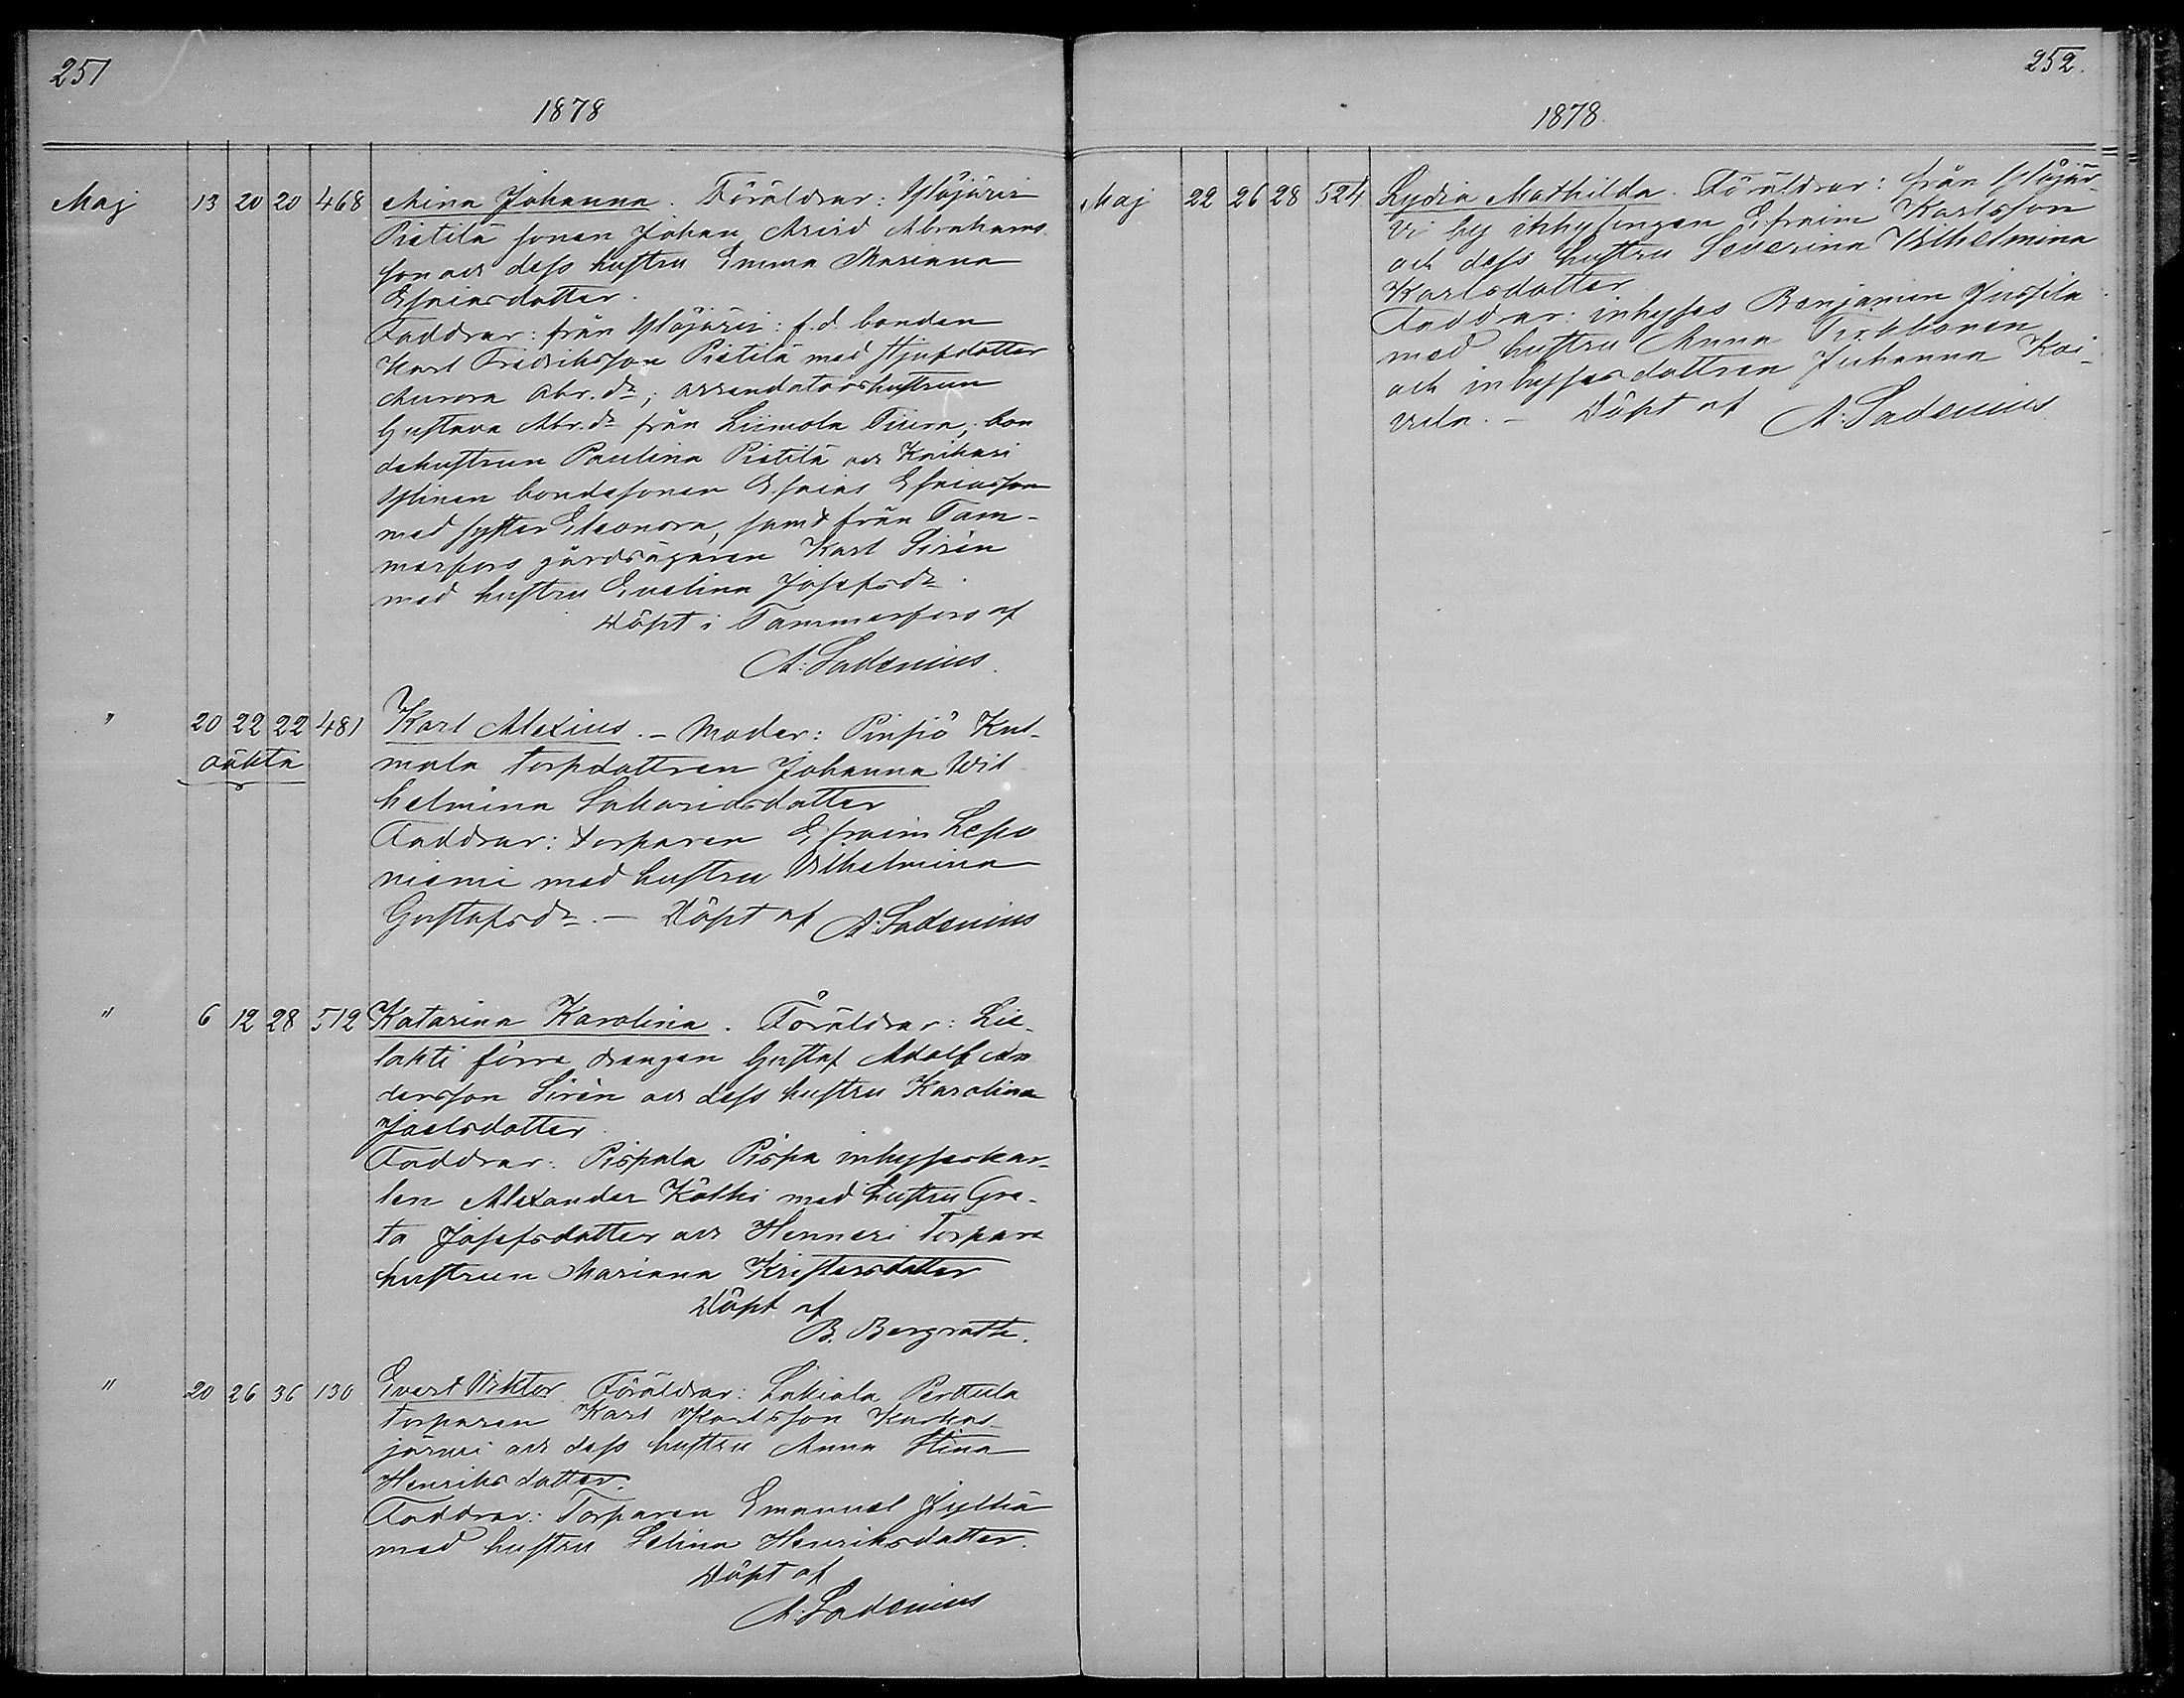 251
1878
Maj 13 20 20 468 Mina Johanna. Föräldrar: Ylöjärvi
Pietilä sonen Johan Arvid Abrahams
son och dess hustru Emma Mariana
Esaiasdotter.
Faddrar: från Ylöjärvi: f.d. bonden
Karl Fredriksson Pietilä med styfdotter
Aurora Abr.dr; arrendatorshustrun
Gustava Abr.dr från Liimola Tiura, bon
dehustrun Paulina Pietilä och Knihari
Ylinen bondesonen Esaias Esaiasson
med syster Eleonora, samt från Tam-
merfors gårdsägaren Karl Sirén
med hustru Evelina Josefsdr.
Döpt i Tammerfors af
A. Ladenius.
" 20 22 22 481 Karl Alexius. - Moder: Pinsiö Kul-
oäkta mala torpdottren Johanna Wil
helmina Sakariasdotter
Faddrar: torparen Efraim Lepo
niemi med hustru Vilhelmina
Gustafsdr. - Döpt af A. Ladenius
" 6 12 28 512 Katarina Karolina. Föräldrar: Lie-
lahti förre drängen Gustaf Adolf An
dersson Sirén och dess hustru Karolina
Joelsdotter
Faddrar: Pispala Pispa inhyseskar-
len Alexander Kölhi med hustru Gre-
ta Josefsdotter och Henneri torpare
hustrun Mariana Kristersdotter
Döpt af
B. Bergroth.
" 20 26 36 130 Evert Viktor Föräldrar: Lakiala Perttula
torparen Karl Karlsson Karhas-
järvi och dess hustru Anna Stina
Henriksdotter.
Faddrar: Torparen Emanuel Jylhä
med hustru Selina Henriksdotter.
Döpt af
A. Ladenius
252.
1878.
Maj 22 26 28 524 Lydia Mathilda. Föräldrar: från Ylöjär-
vi by inhysingen Efraim Karlsson
och dess hustru Severina Vilhelmina
Karlsdotter
Faddrar: inhyses Benjamin Jussila
med hustru Anna Pirkkonen
och inhysesdottren Johanna Koi-
vula. - Döpt af A. Ladenius